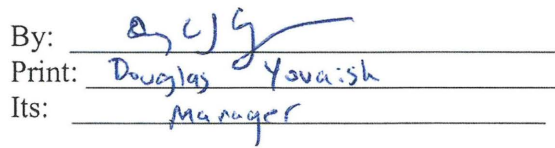 By:
Print: Douglas Yovaish
Its: Manager